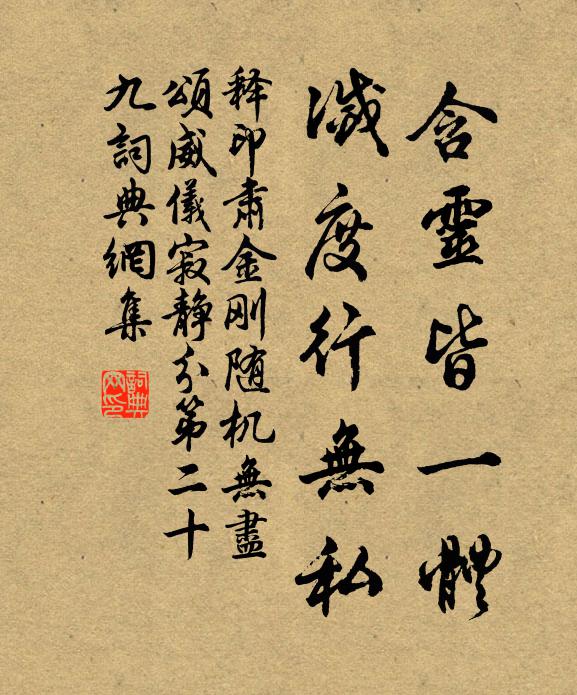 含靈皆一體
滅度行無私
释印肅金刚随机無盡
頌威儀寂静分第二十
九詞典網集
詞典
网印